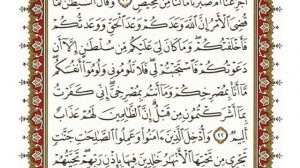 أَجَزِعْنَآ أَمْ صَبَرْنَا مَا لَنَا مِن مَّحِيصٍ ٢١ وَقَالَ ٱلشَّيْطَٰنُ لَمَّا
قُضِىَ ٱلْأَمْرُ إِنَّ ٱللَّهَ وَعَدَكُمْ وَعْدَ ٱلْحَقِّ وَوَعَدتُّكُمْ
فَأَخْلَفْتُكُمْ ۖ وَمَا كَانَ لِىَ عَلَيْكُم مِّن سُلْطَٰنٍ إِلَّآ أَن
دَعَوْتُكُمْ فَٱسْتَجَبْتُمْ لِى ۖ فَلَا تَلُومُونِى وَلُومُوٓا۟ أَنفُسَكُم ۖ
مَّآ أَنَا۠ بِمُصْرِخِكُمْ وَمَآ أَنتُم بِمُصْرِخِىَّ ۖ إِنِّى كَفَرْتُ
بِمَآ أَشْرَكْتُمُونِ مِن قَبْلُ ۗ إِنَّ ٱلظَّٰلِمِينَ لَهُمْ عَذَابٌ
أَلِيمٌ ٢٢ وَأُدْخِلَ ٱلَّذِينَ ءَامَنُوا۟ وَعَمِلُوا۟ ٱلصَّٰلِحَٰتِ جَنَّٰتٍ
تَجْرِى مِن تَحْتِهَا ٱلْأَنْهَٰرُ خَٰلِدِينَ فِيهَا بِإِذْنِ رَبِّهِمْ ۖ تَحِيَّتُهُمْ